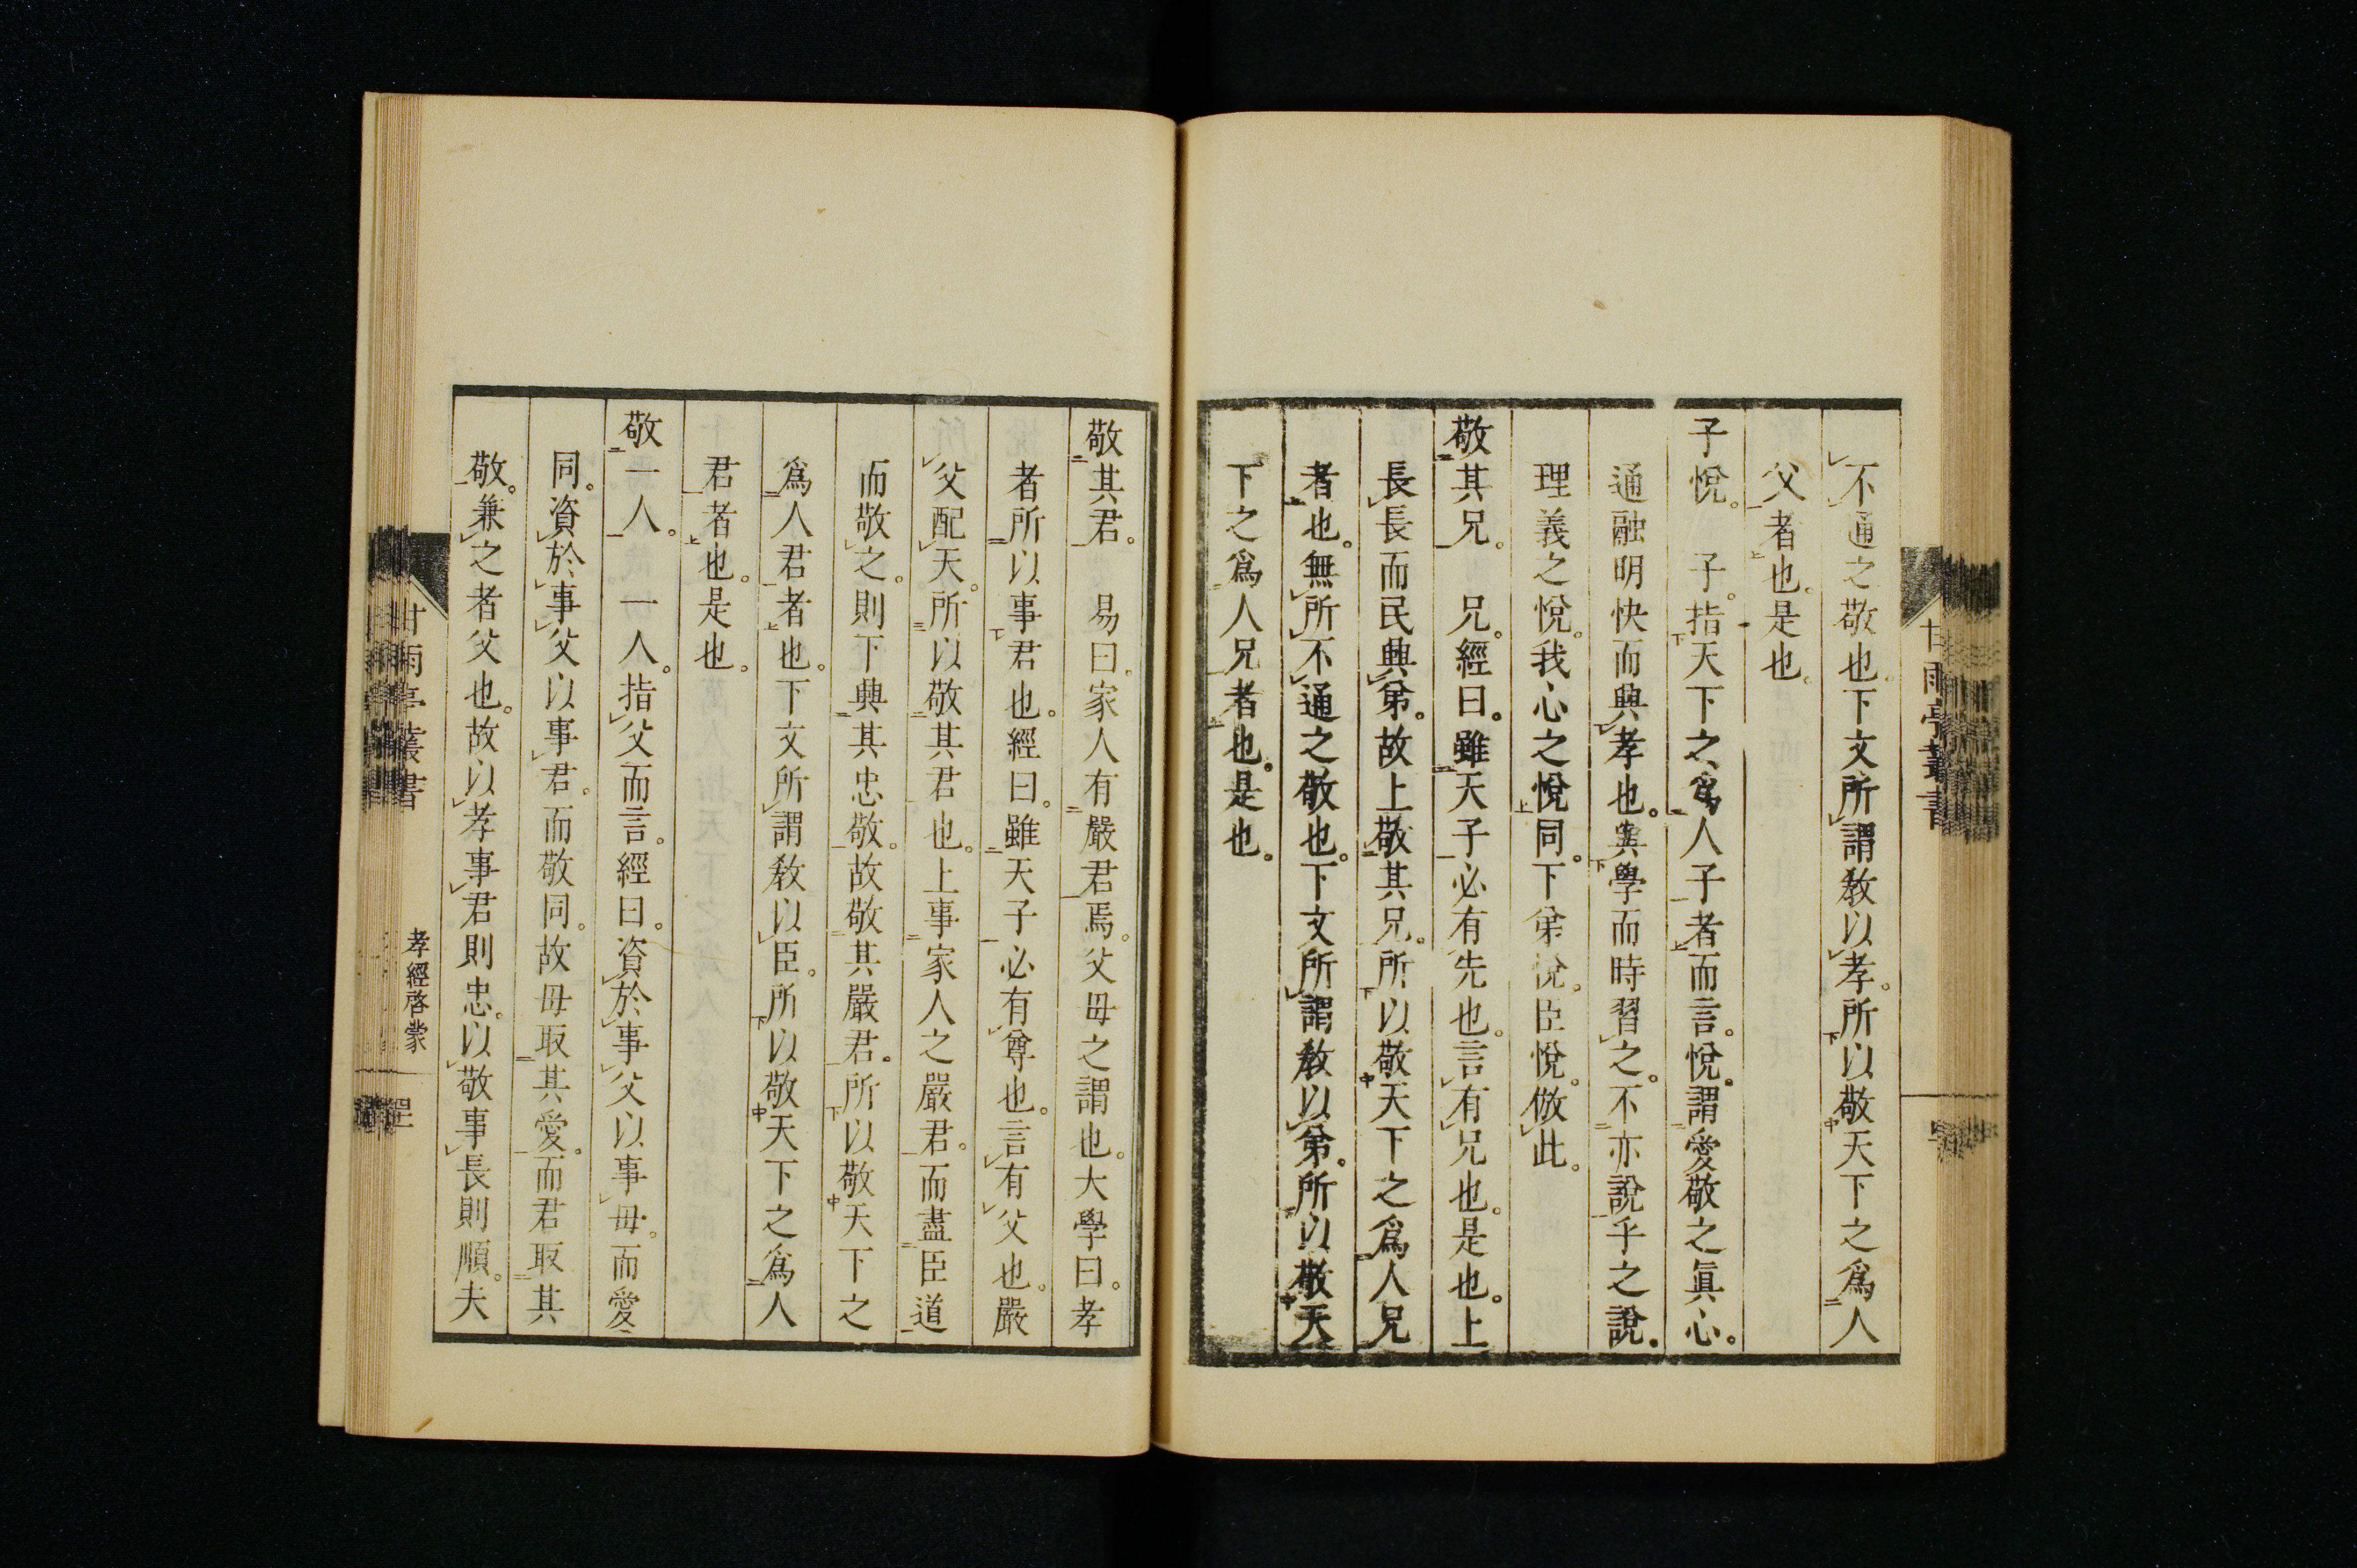 不通之敬也。下文所謂敎以孝。所以敬天下之爲人
父者也。是也。
子悅。子。指天下之爲人子者而言。悅。謂愛敬之眞心。
通融明快而興孝也。與學而時習之。不亦說乎之說。
理義之悅。我心之悅同。下弟悅。臣悅。倣此。
敬其兄。兄。經曰。雖天子必有先也。言有兄也。是也。上
長長而民興弟。故上敬其兄。所以敬天下之爲人兄
者也。無所不通之敬也。下文所謂敎以弟。所以敬天
下之爲人兄者也。是也。
甘雨亭叢書
敬其君。易曰。家人有嚴君焉。父母之謂也。大學曰。孝
者所以事君也。經曰。雖天子必有尊也。言有父也。嚴
父配天。所以敬其君也。上事家人之嚴君。而盡臣道
而敬之。則下興其忠敬。故敬其嚴君。所以敬天下之
爲人君者也。下文所謂敎以臣。所以敬天下之爲人
君者也。是也。
敬一人。一人。指父而言。經曰。資於事父以事母。而愛
同。資於事父以事君。而敬同。故母取其愛。而君取其
敬。兼之者父也。故以孝事君則忠。以敬事長則順。夫
甘雨亭叢書
孝經啓蒙